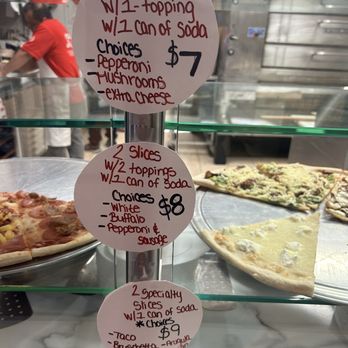 w/1-topping
w/1 can of soda
Choices $7
-Pepperoni
-Mushrooms
-extra cheese
2 Slices
w/2 toppings
w/1 can of soda
Choices $8
-White
-Buffalo
-Pepperoni &
sausage
2 Specialty
Slices
w/1 can of soda
*Choices
-Taco $9
-Bruschetta -Arugula